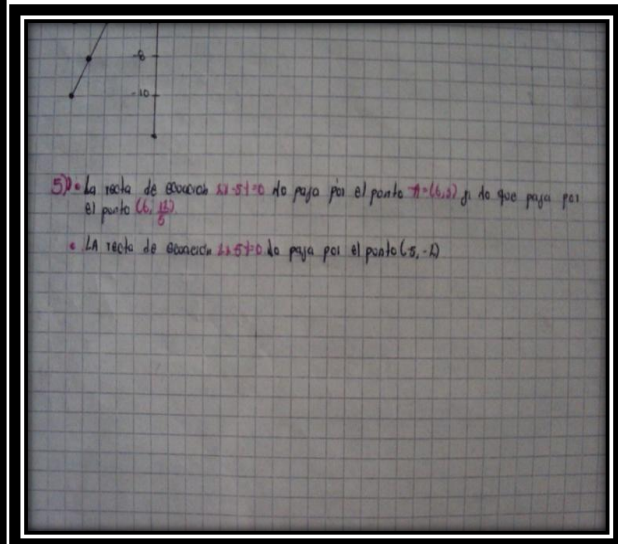 -8
-10
5) • La recta de ecuación 2x-5y=0 No pasa por el punto A=(6,3) si no que pasa por
el punto (6, 12/5)
• LA recta de ecuación 2x-5y=0 No pasa por el punto (5,-2)